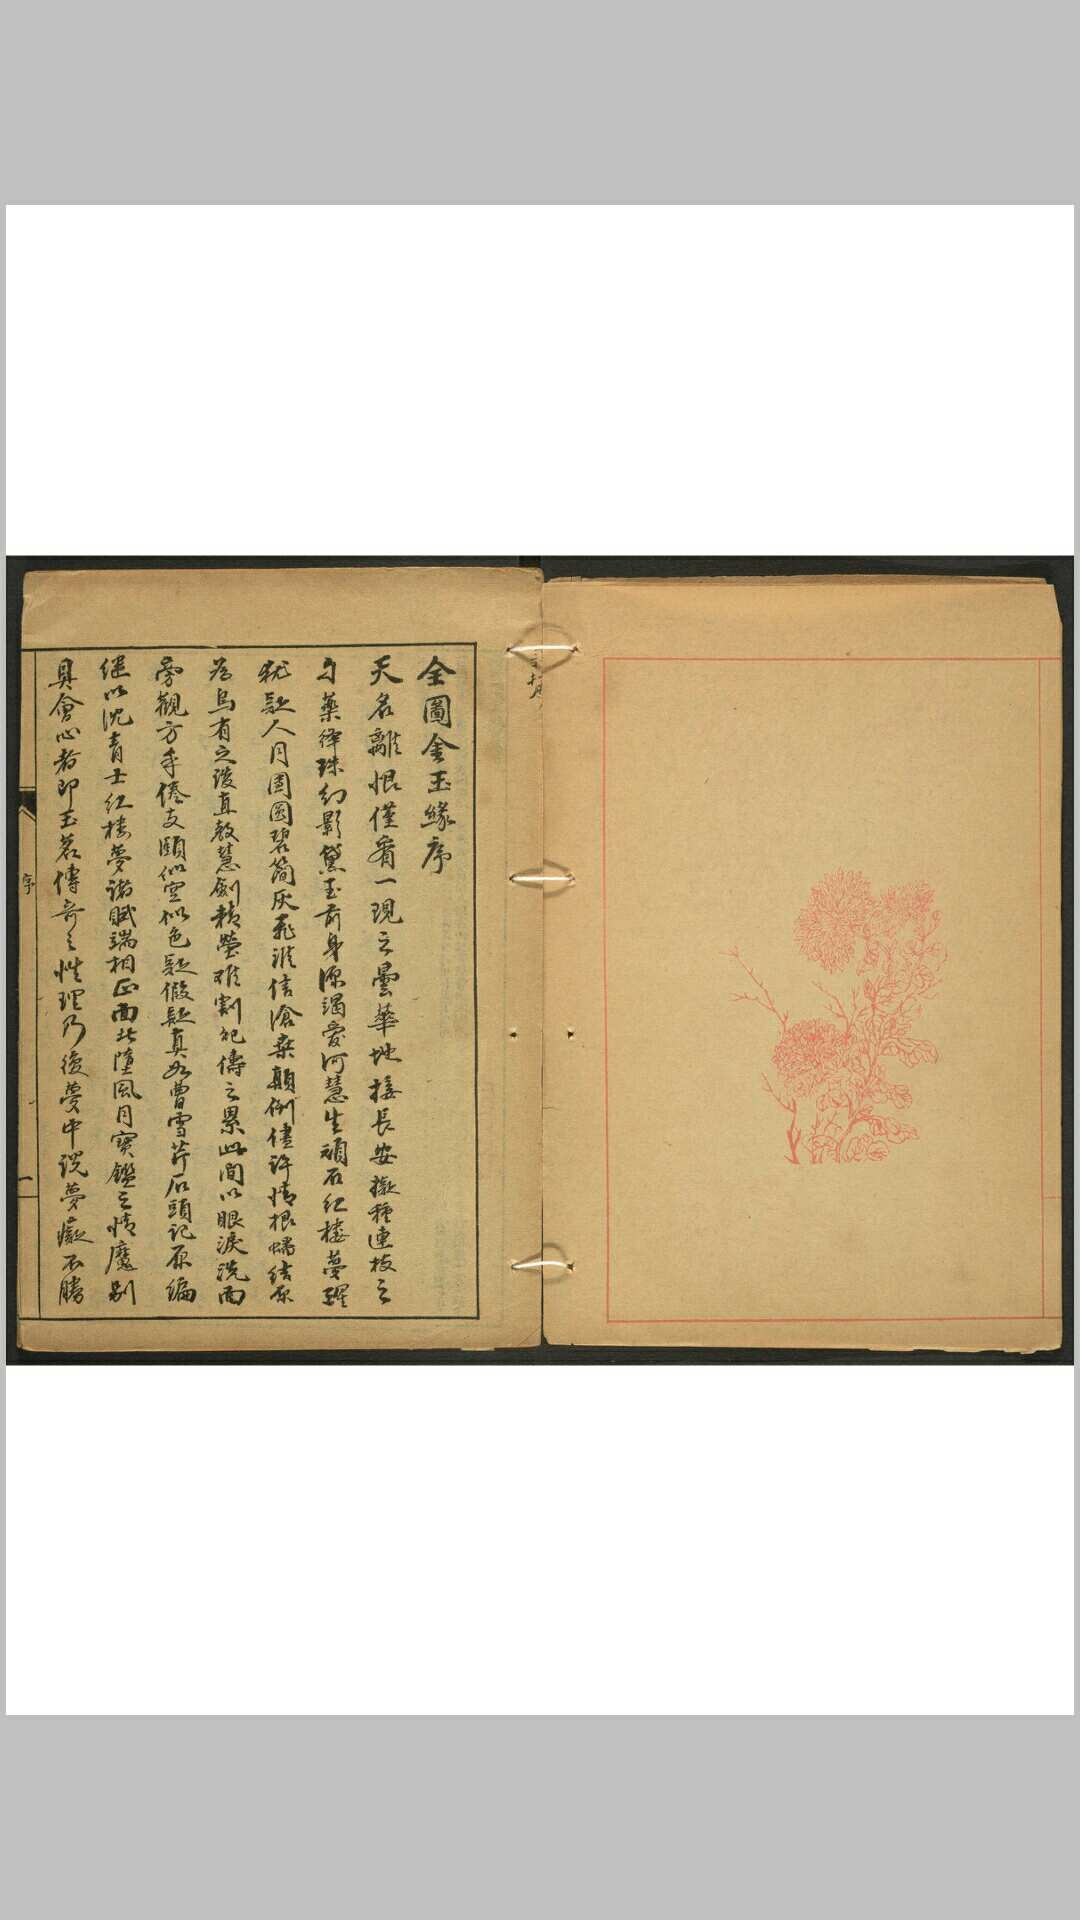 全圖金玉緣序
天名離恨僅看一現之曇華地接長安擬種連枝之
勺藥絳珠幻影黛玉前身源竭愛河慧生頑石紅樓夢醒
猶疑人月團圓碧簡灰飛誰信滄桑顛倒儘許情根蟠結原
為烏有之談直教慧劍精瑩難割祀儔之累此間以眼淚洗面
旁觀方手倦支頤似空似色疑假疑真如曹雪芹石頭記原編
繼以沈青士紅樓夢諸賦端相正面北墮風月寶鑑之情魔別
具會心者即玉茗傳奇之性理乃復夢中說夢癡不勝
序
一